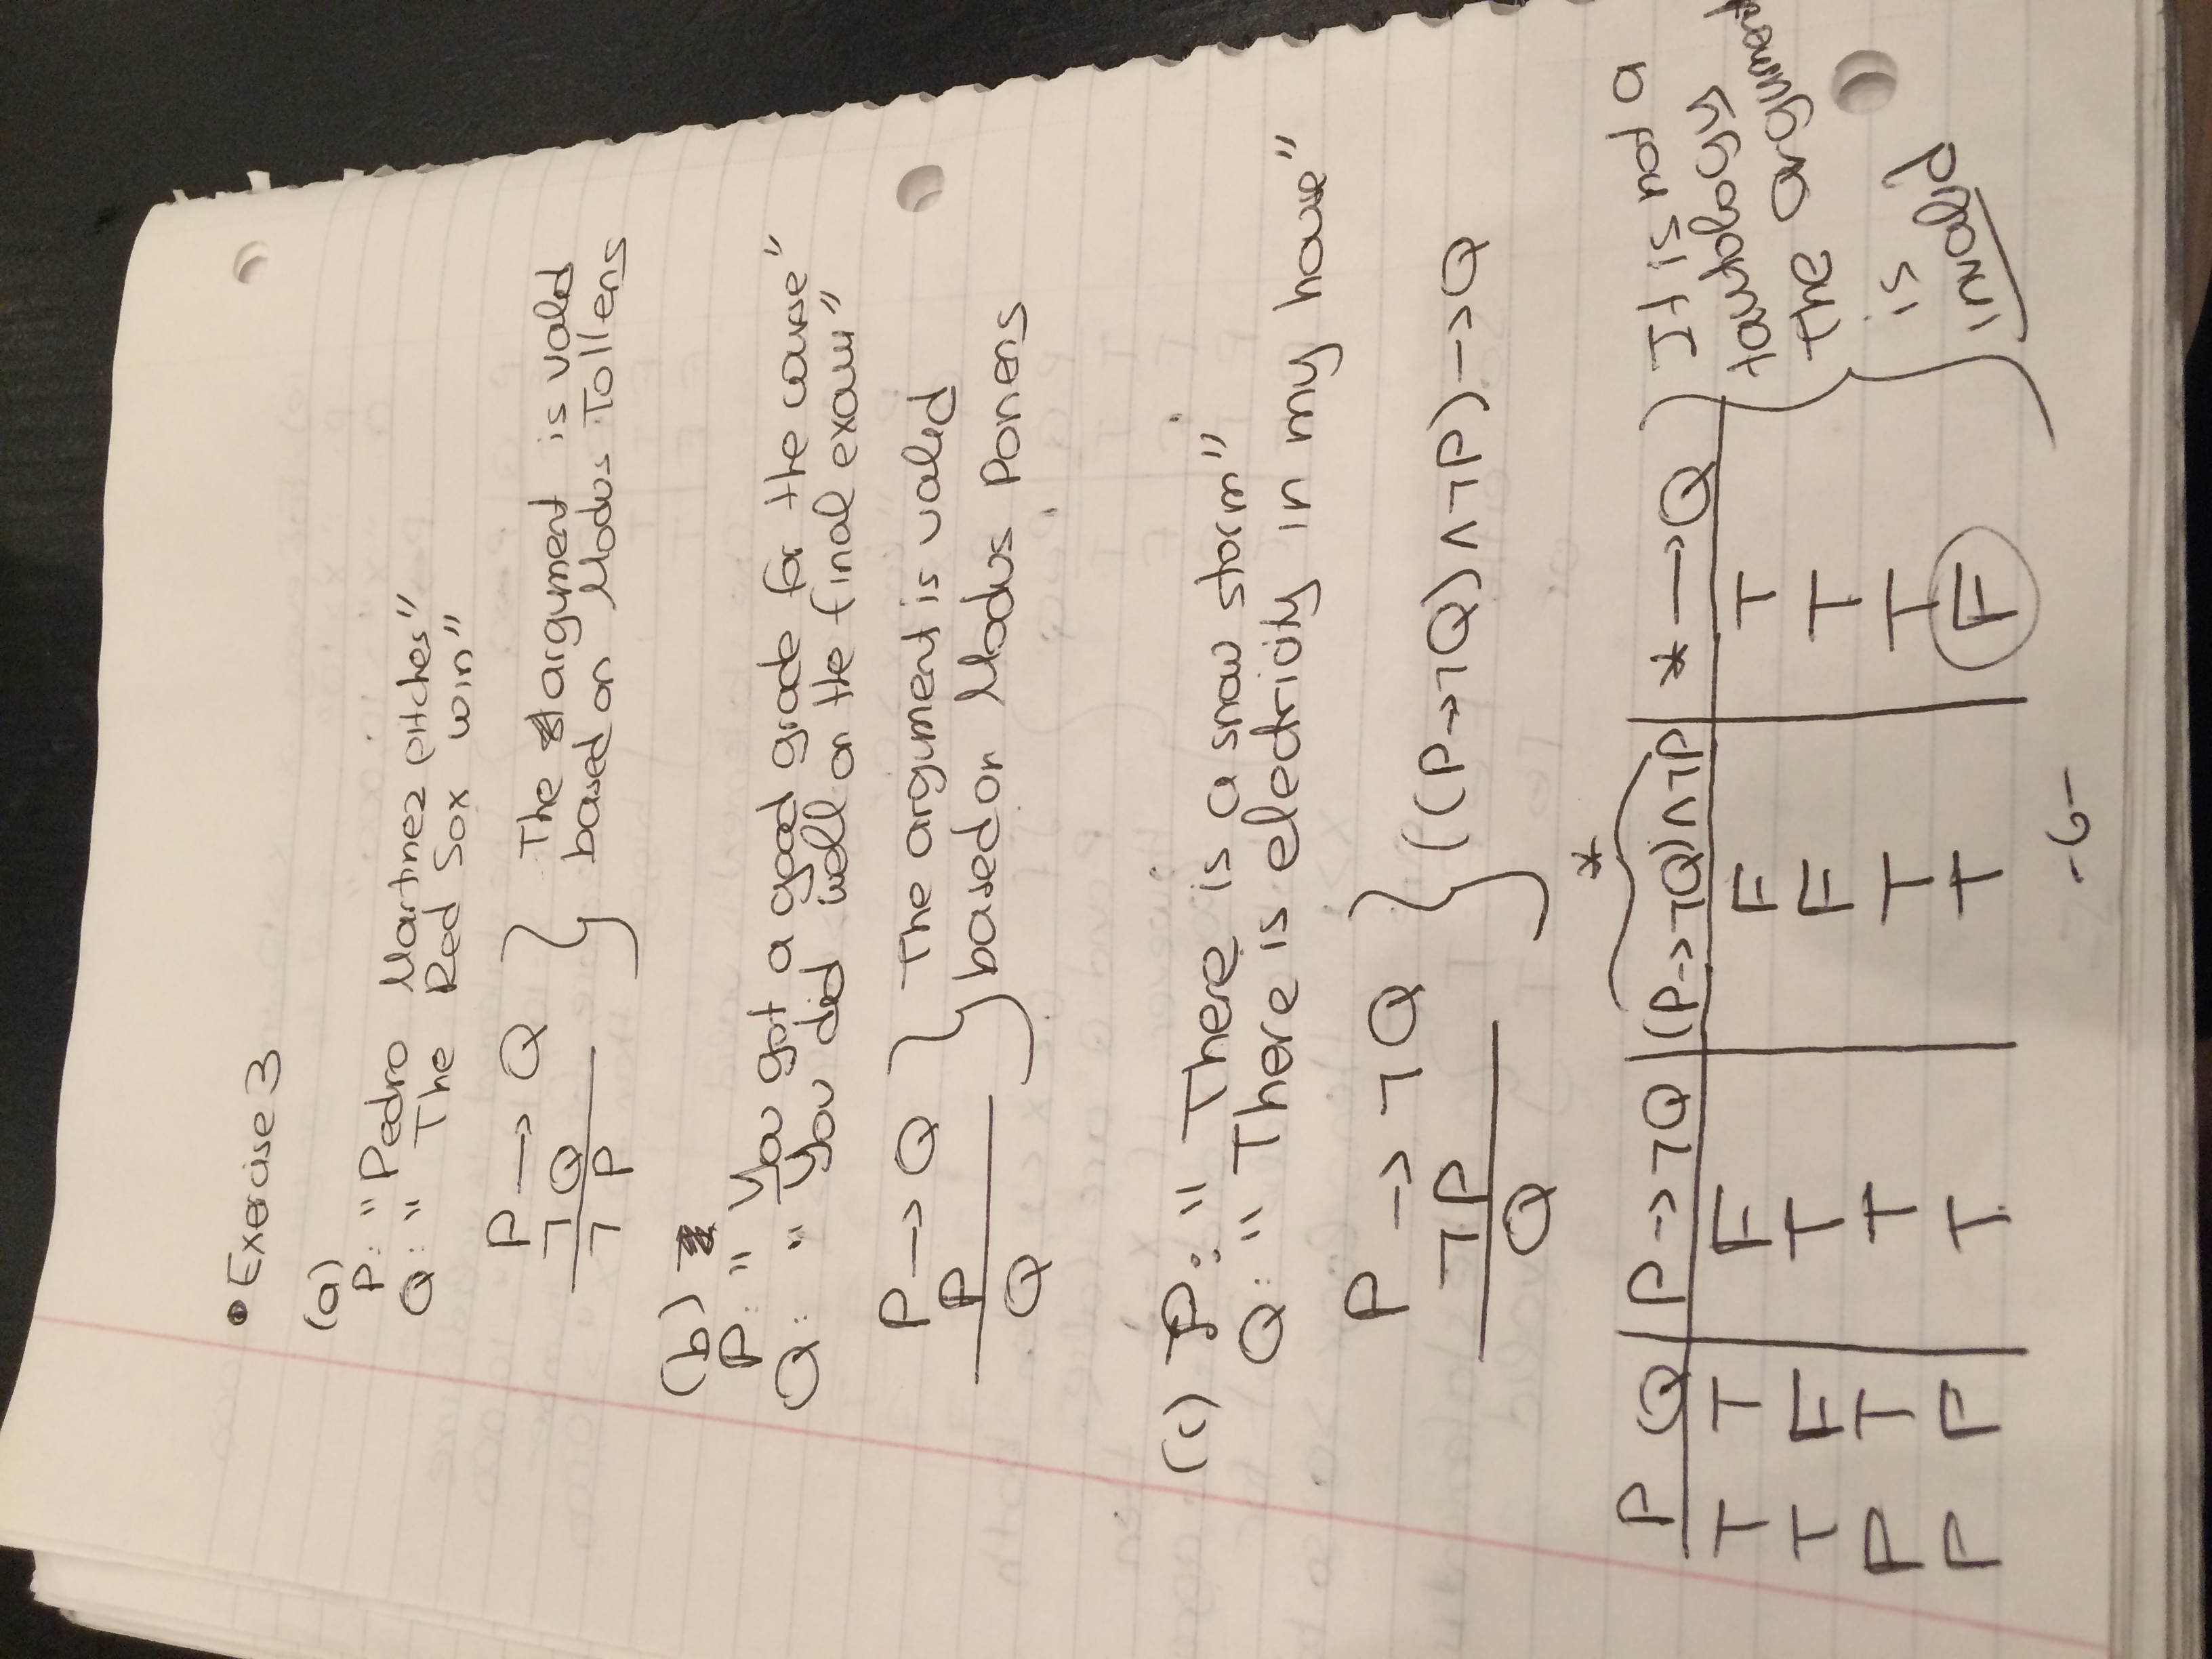 • Exercise 3
(a)
P: "Pedro Martinez pitches"
Q: "The Red Sox win"
P → Q
¬Q
¬P
} The argument is valid
based on Modus Tollens
(b)
P: "You got a good grade for the course"
Q: "You did well on the final exam"
P → Q
P
Q
} The argument is valid
based on Modus Ponens
(c) P: "There is a snow storm"
Q: "There is electricity in my house"
P → ¬Q
¬P
Q
} ((P→¬Q)∧¬P)→Q
*
P Q | P→¬Q | (P→¬Q)∧¬P | *→Q
T T | F | F | T
T F | T | F | T
P T | T | T | T
P P | T | T | F
} It is not a
tautology
The argument
is
invalid
-6-